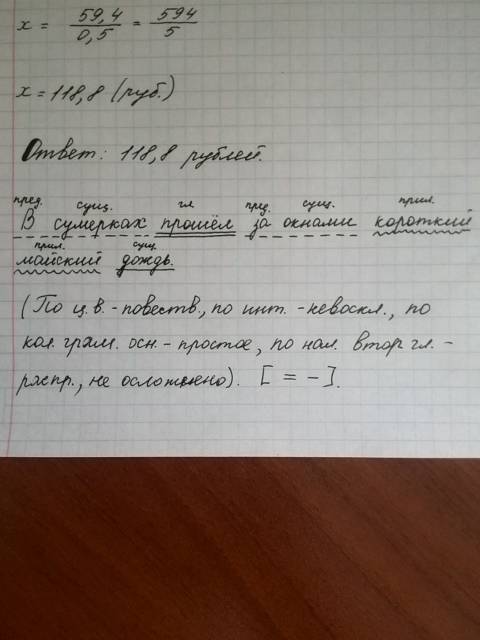 x = 59,4 / 0,5 = 594 / 5
x = 118,8 (руб.)
Ответ: 118,8 рублей.
пред. сущ. гл. пред. сущ. прил.
В сумерках прошёл за окнами короткий
прил. сущ.
майский дождь.
(По ц.в. - повеств., по инт. - невоскл., по
кол. грам. осн. - простое, по нал. втор гл. -
распр., не осложнено). [ = - ].